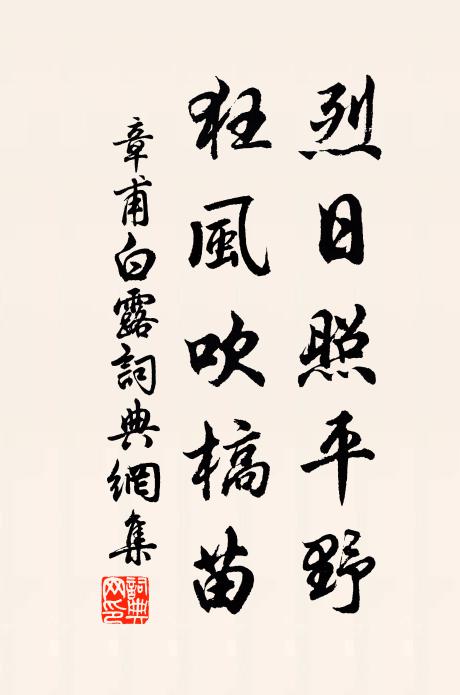 烈日照平野
狂風吹槁苗
章甫白露詞典網集
詞典網印